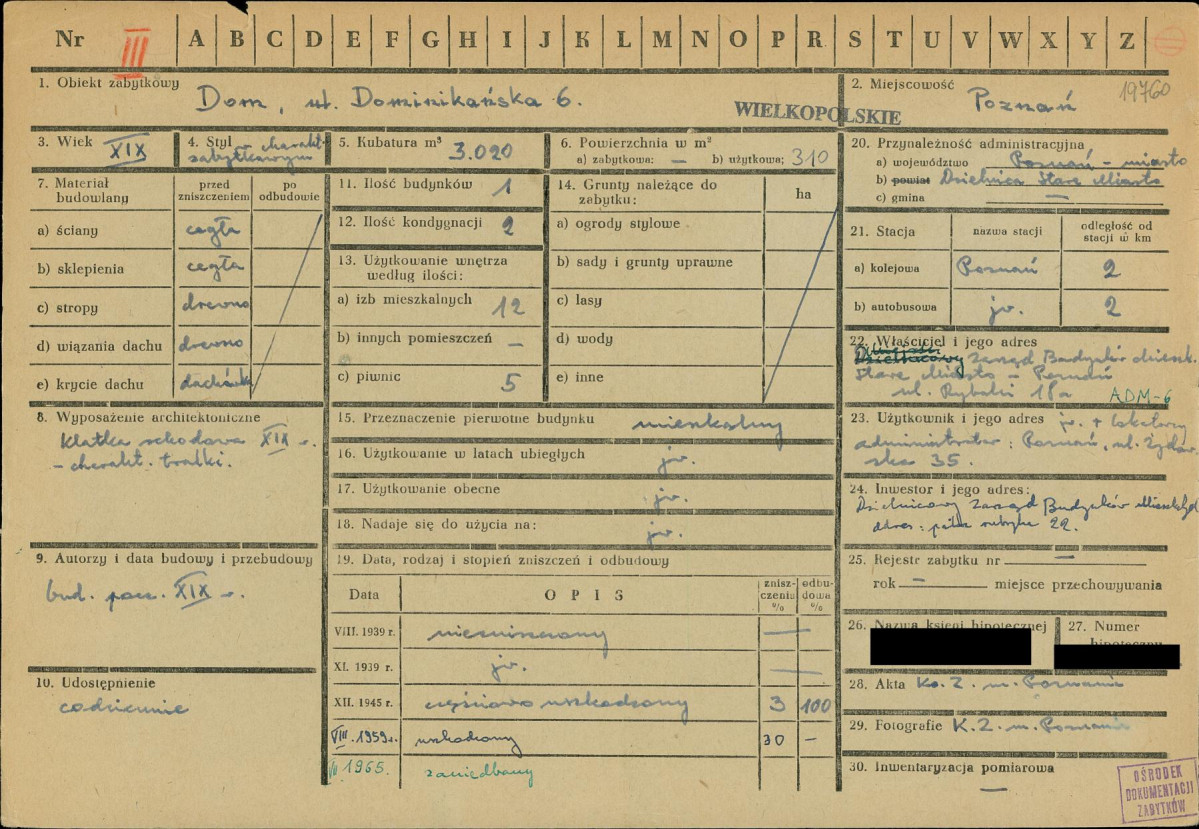 Nr III A B C D E F G H I J K L M N O P R S T U V W X Y Z
1. Obiekt zabytkowy
Dom, ul. Dominikańska 6.
WIELKOPOLSKIE
2. Miejscowość
Poznań
19760
3. Wiek
XIX
4. Styl charakt.
zabytkowym
5. Kubatura m³ 3.020
6. Powierzchnia w m²
a) zabytkowa: — b) użytkowa: 310
7. Materiał budowlany
przed zniszczeniem
po odbudowie
a) ściany cegła
b) sklepienia cegła
c) stropy drewno
d) wiązania dachu drewno
e) krycie dachu dachówka
8. Wyposażenie architektoniczne
Klatka schodowa XIX w.
- charakt. tralki.
9. Autorzy i data budowy i przebudowy
bud. pocz. XIX w.
10. Udostępnienie
codziennie
11. Ilość budynków 1
12. Ilość kondygnacji 2
13. Użytkowanie wnętrza
według ilości:
a) izb mieszkalnych 12
b) innych pomieszczeń —
c) piwnic 5
14. Grunty należące do
zabytku:
ha
a) ogrody stylowe
b) sady i grunty uprawne
c) lasy
d) wody
e) inne
15. Przeznaczenie pierwotne budynku mieszkalny
16. Użytkowanie w latach ubiegłych jw.
17. Użytkowanie obecne jw.
18. Nadaje się do użycia na: jw.
19. Data, rodzaj i stopień zniszczeń i odbudowy
Data OPIS znisz-
czeniu
%
odbu-
dowa
%
VIII. 1939 r. niezniszczony —
XI. 1939 r. jw. —
XII. 1945 r. częściowo uszkodzony 3 100
VIII. 1959 r. uszkodzony 30 —
1965. zaniedbany
20. Przynależność administracyjna
a) województwo Poznań - miasto
b) powiat Dzielnica Stare Miasto
c) gmina —
21. Stacja
nazwa stacji
odległość od
stacji w km
a) kolejowa Poznań 2
b) autobusowa jw. 2
22. Właściciel i jego adres
Dzielnicowy Zarząd Budynków Mieszk.
Stare Miasto - Poznań
ul. Rybaki 18a
ADM-6
23. Użytkownik i jego adres jw. + lokatorzy
administrator: Poznań, ul. Żydow-
ska 35.
24. Inwestor i jego adres:
Dzielnicowy Zarząd Budynków Mieszkal
adres: patrz rubryka 22.
25. Rejestr zabytku nr —
rok — miejsce przechowywania
26. Nazwa księgi hipotecznej
27. Numer
hipoteczny
28. Akta K.Z. m. Poznania
29. Fotografie K.Z. m. Poznania
30. Inwentaryzacja pomiarowa
—
OŚRODEK
DOKUMENTACJI
ZABYTKÓW